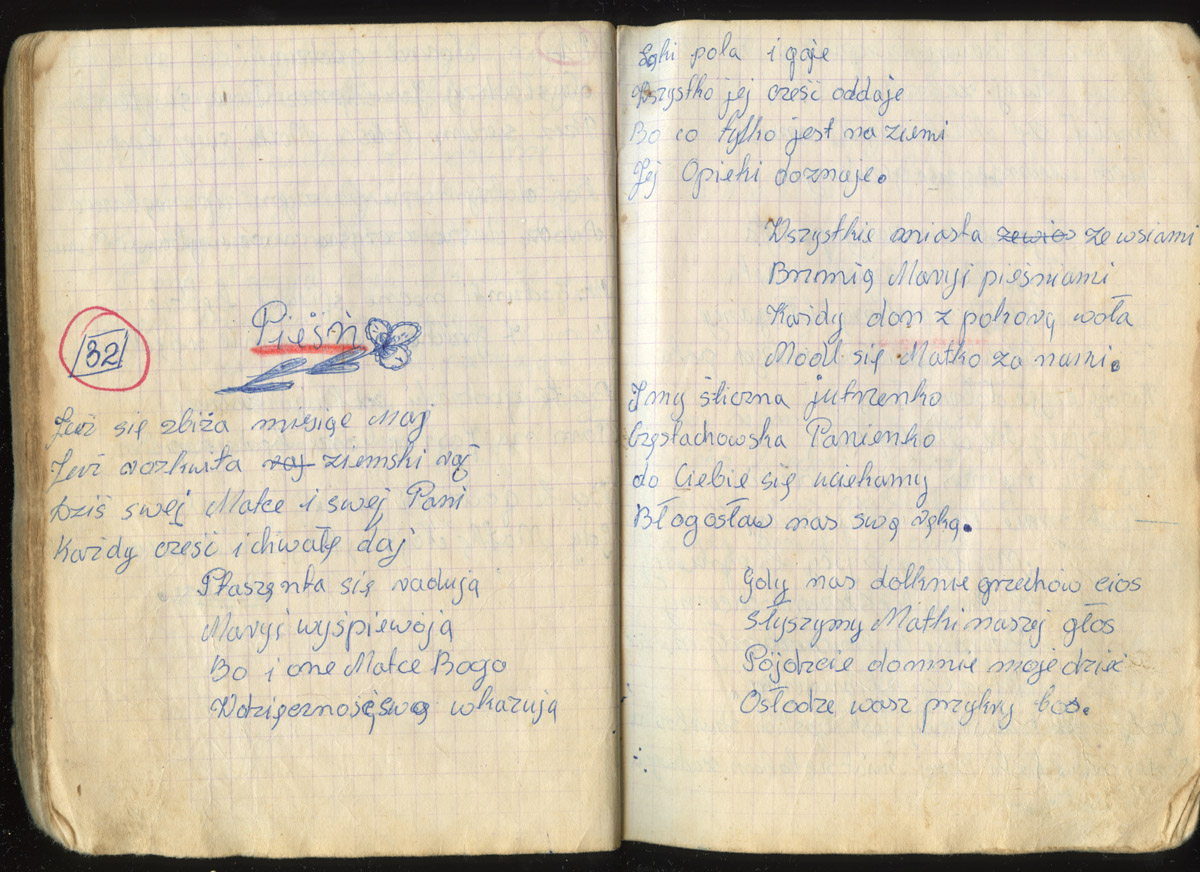 32
Pieśń
Już się zbliża miesiąc Maj
Już rozkwita raj ziemski raj
Dziś swej Matce i swej Pani
Każdy cześć i chwałę daj
Ptaszęnta się radują
Maryi wyśpiewują
Bo i one Matce Bogo
Wdzięczność swą wkazują
Łąki pola i gaje
Wszystko jej cześć oddaje
Bo co tylko jest na ziemi
Jej Opieki doznaje.
Wszystkie miasta zewię ze wsiami
Brzmią Maryi pieśniami
Każdy don z pokorą woła
Módl się Matko za nami.
I my śliczna jutrzenko
Częstachowska Panienko
do Ciebie się uciekamy
Błogosław nas swą ręką.
Gdy nas dotknie grzechów cios
Słyszymy Matki naszej głos
Pójdzcie domnie moje dzieć
Osłodzę wasz przykry los.